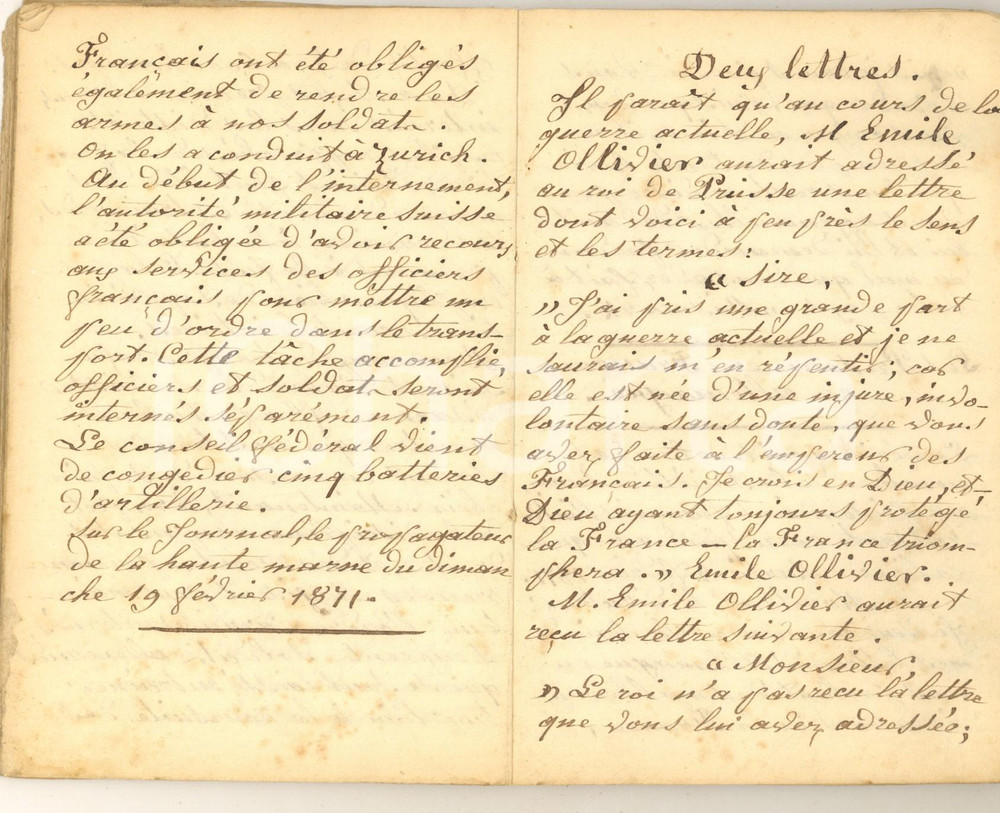 Français ont été obligés
également de rendre les
armes à nos soldats.
On les a conduit à Zurich.
Au début de l'internement,
l'autorité militaire suisse
a été obligée d'avoir recours
aux services des officiers
français pour mettre un
peu d'ordre dans le trans-
port. Cette tâche accomplie,
officiers et soldats seront
internés séparément.
Le conseil fédéral vient
de congédier cinq batteries
d'artillerie.
Sur le Journal, le propagateur
de la haute marne du diman
che 19 février 1871.
Deux lettres.
Il paraît qu'au cours de la
guerre actuelle, M Emile
Ollivier aurait adressé
au roi de Prusse une lettre
dont voici à peu près le sens
et les termes :
« Sire,
» J'ai pris une grande part
à la guerre actuelle et je ne
saurais m'en répentir ; car
elle est née d'une injure, invo-
lontaire sans doute, que vous
avez faite à l'empereur des
Français. Je crois en Dieu, et
Dieu ayant toujours protégé
la France — la France triom-
phera. » Emile Ollivier.
M. Emile Ollivier aurait
reçu la lettre suivante.
« Monsieur,
» Le roi n'a pas reçu la lettre
que vous lui avez adressée ;